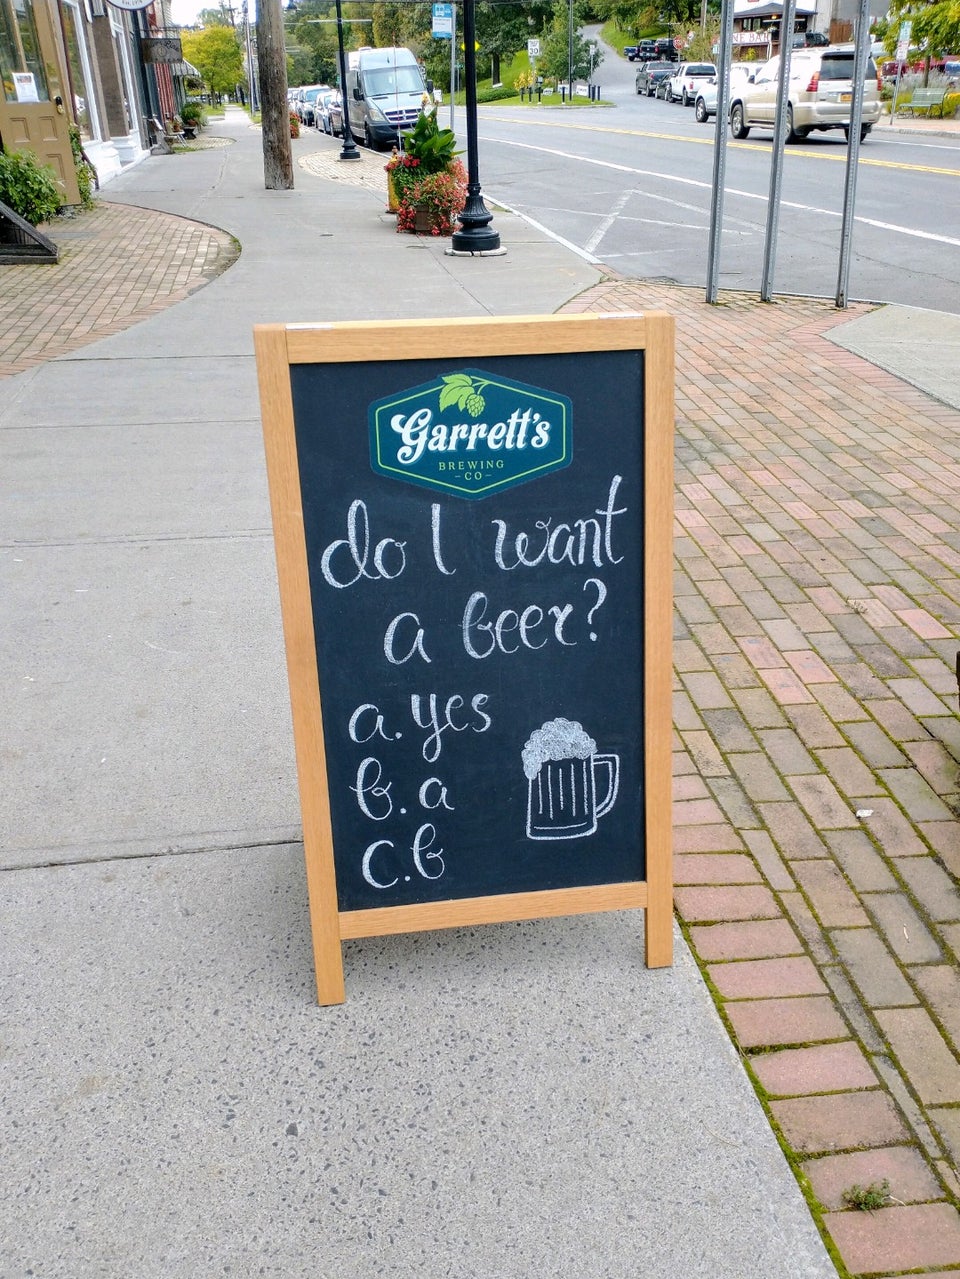 Garrett's
BREWING
-CO-
do I want
a beer?
a. yes
b. a
c. b